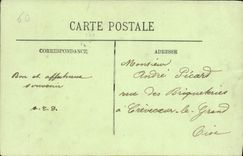 60
CARTE POSTALE
CORRESPONDANCE
ADRESSE
Bon et affectueux
souvenir
Monsieur
André Picard
rue des Briqueteries
à Crèvecoeur-le-Grand
Oise